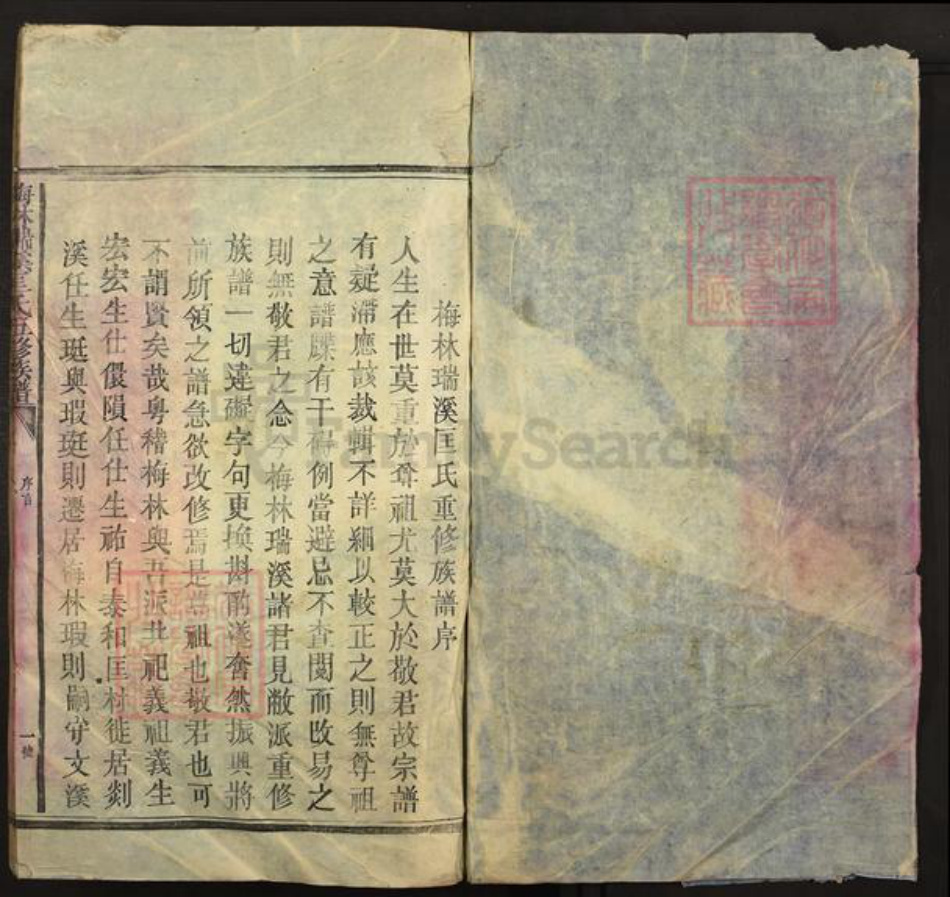 梅林瑞溪匡氏重修族譜序
人生在世莫重於尊祖尤莫大於敬君故宗譜
有疑滯應該裁輯不詳細以較正之則無尊祖
之意譜牒有干碍例當避忌不查閱而改易之
則無敬君之念今梅林瑞溪諸君見敝派重修
族譜一切違礙字句更換斟酌遂奮然振興將
前所領之譜急欲改修焉是尊祖也敬君也可
不謂賢矣哉粤稽梅林與吾派共祀義祖義生
宏宏生仕儇隕任仕生祐自泰和匡村徙居剡
溪任生珽與瑕珽則遷居梅林瑕則嗣守文溪
梅林瑞溪匡氏五修族譜
序首
一號
FamilySearch